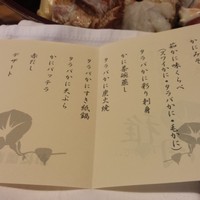 かにみそ
茹かに味くらべ
(ズワイかに・タラバかに・毛かに)
タラバかに彩り刺身
かに茶碗蒸し
タラバかに炭火焼
タラバかにすき紙鍋
タラバかに天ぷら
かにバッテラ
赤だし
デザート